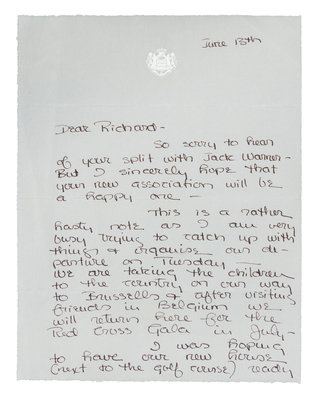 June 13th
Dear Richard-
So sorry to hear
of your split with Jack Warner-
But I sincerely hope that
your new association will be
a happy one-
This is a rather
hasty note as I am very
busy trying to catch up with
things & organise our de-
parture on Tuesday-
We are taking the children
to the country on our way
to Brussells & after visiting
friends in Belgium we
will return here for the
Red Cross Gala in July-
I was hoping
to have our new house
(next to the golf course) ready